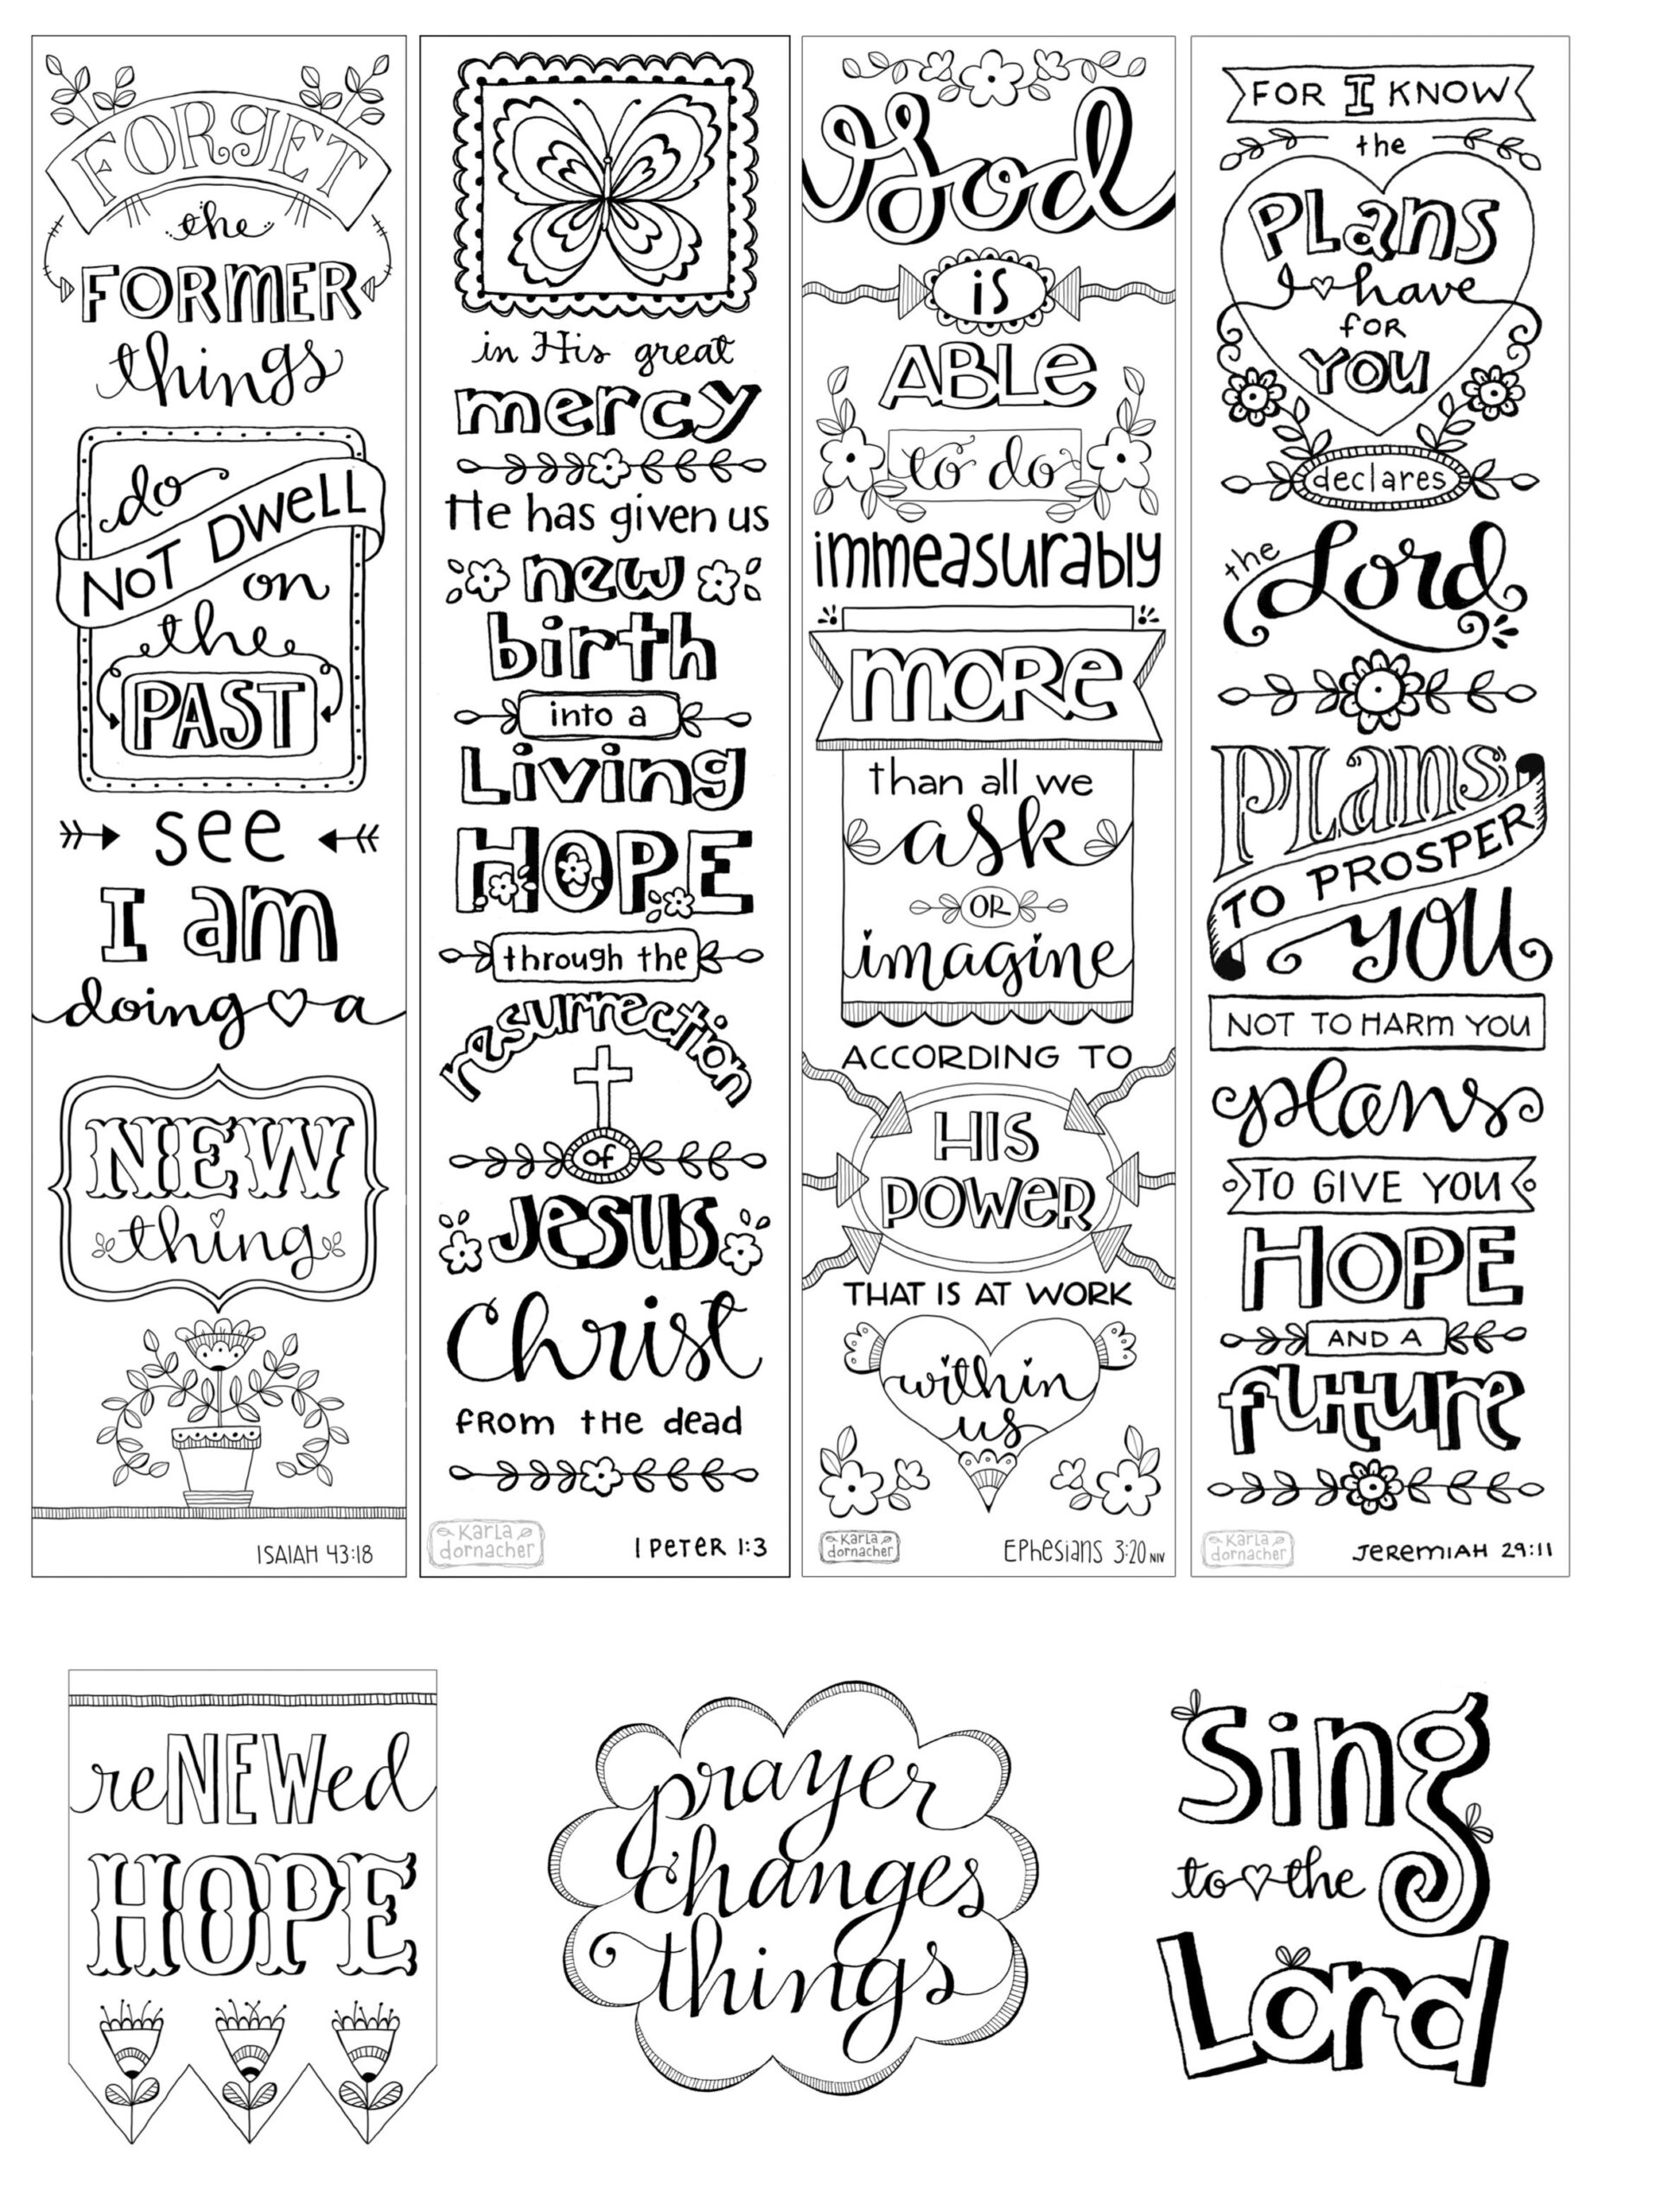 FORGET
the
FORMER
things
do
NOT DWELL
on
the
PAST
see
I am
doing a
NEW
thing
ISAIAH 43:18
in His great
mercy
He has given us
new
birth
into a
Living
HOPE
through the
resurrection
of
Jesus
Christ
FROM THE dead
Karla
dornacher
I PETER 1:3
God
is
ABLE
to do
immeasurably
MORE
than all we
ask
OR
imagine
ACCORDING TO
HIS
POWER
THAT IS AT WORK
within
us
Karla
dornacher
Ephesians 3:20 NIV
FOR I KNOW
the
PLans
I have
FOR
YOU
declares
the
Lord
PLans
TO PROSPER
YOU
NOT TO HARM YOU
plans
TO GIVE YOU
HOPE
AND A
future
Karla
dornacher
JEREMIAH 29:11
reNEWed
HOPE
prayer
changes
things
Sing
to the
Lord